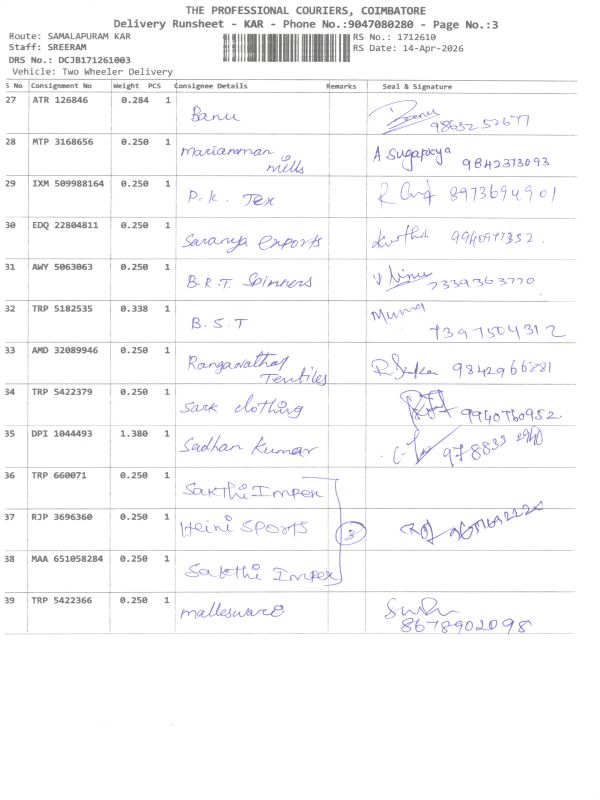 THE PROFESSIONAL COURIERS, COIMBATORE
Delivery Runsheet - KAR - Phone No.:9047080280 - Page No.:3
Route: SAMALAPURAM KAR RS No.: 1712610
Staff: SREERAM RS Date: 14-Apr-2026
DRS No.: DCJB171261003
Vehicle: Two Wheeler Delivery
S No Consignment No Weight PCS Consignee Details Remarks Seal & Signature
27 ATR 126846 0.284 1 Banu
28 MTP 3168656 0.250 1 Mariamman mills A Sugapriya 9842373093
29 IXM 509988164 0.250 1 P.K. Tex 8973694901
30 EDQ 22804811 0.250 1 Saranya exports
31 AWY 5063063 0.250 1 B.R.T. Spinners 7339363770
32 TRP 5182535 0.338 1 B.S.T 7397504312
33 AMD 32089946 0.250 1 Ranganathar Textiles 9842966881
34 TRP 5422379 0.250 1 Sark clothing 9940760952.
35 DPI 1044493 1.380 1 Sadhan Kumar
36 TRP 660071 0.250 1 Sakthi Impex
37 RJP 3696360 0.250 1 Heini Sports 3
38 MAA 651058284 0.250 1 Sakthi Impex
39 TRP 5422366 0.250 1 malleswari 8678902098